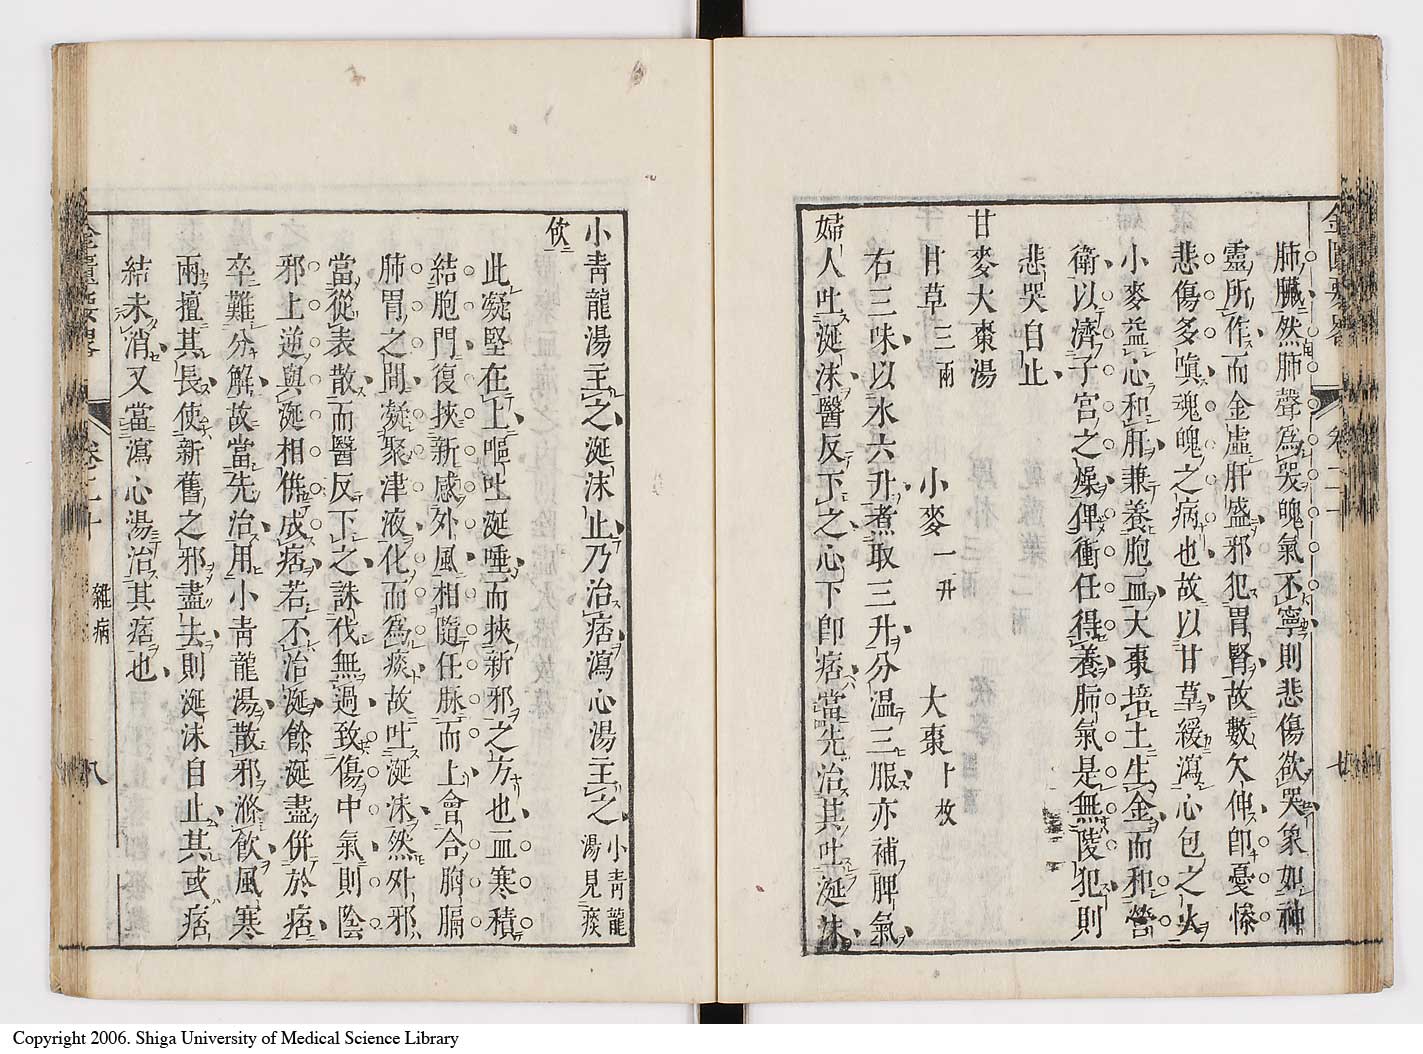 肺臟然肺聲爲哭魄氣不寧則悲傷欲哭象如神
靈所作而金虛肝盛邪犯胃腎故數欠伸卽憂慘
悲傷多嗔魂魄之病也故以甘草緩瀉心包之火
小麥益心和肝兼養胞血大棗培土生金而和營
衛以濟子宮之燥俾衝任得養肺氣是無陵犯則
悲哭自止
甘麥大棗湯
甘草三兩 小麥一升 大棗十枚
右三味以水六升煮取三升分溫三服亦補脾氣
婦人吐涎沫醫反下之心下卽痞當先治其吐涎沫
小靑龍湯主之涎沫止乃治痞瀉心湯主之小靑龍
湯見痰
飮
此凝堅在上嘔吐涎唾而挾新邪之方也血寒積
結胞門復挾新感外風相隨任脉而上會合胸膈
肺胃之間凝聚津液化而爲痰故吐涎沫然外邪
當從表散而醫反下之誅伐無過致傷中氣則陰
邪上逆與涎相倂成痞若不治涎餘涎盡倂於痞
卒難分解故當先治用小靑龍湯散邪滌飮風寒
兩擅其長使新舊之邪盡去則涎沫自止其或痞
結未消又當瀉心湯治其痞也
雜病
八
Copyright 2006. Shiga University of Medical Science Library